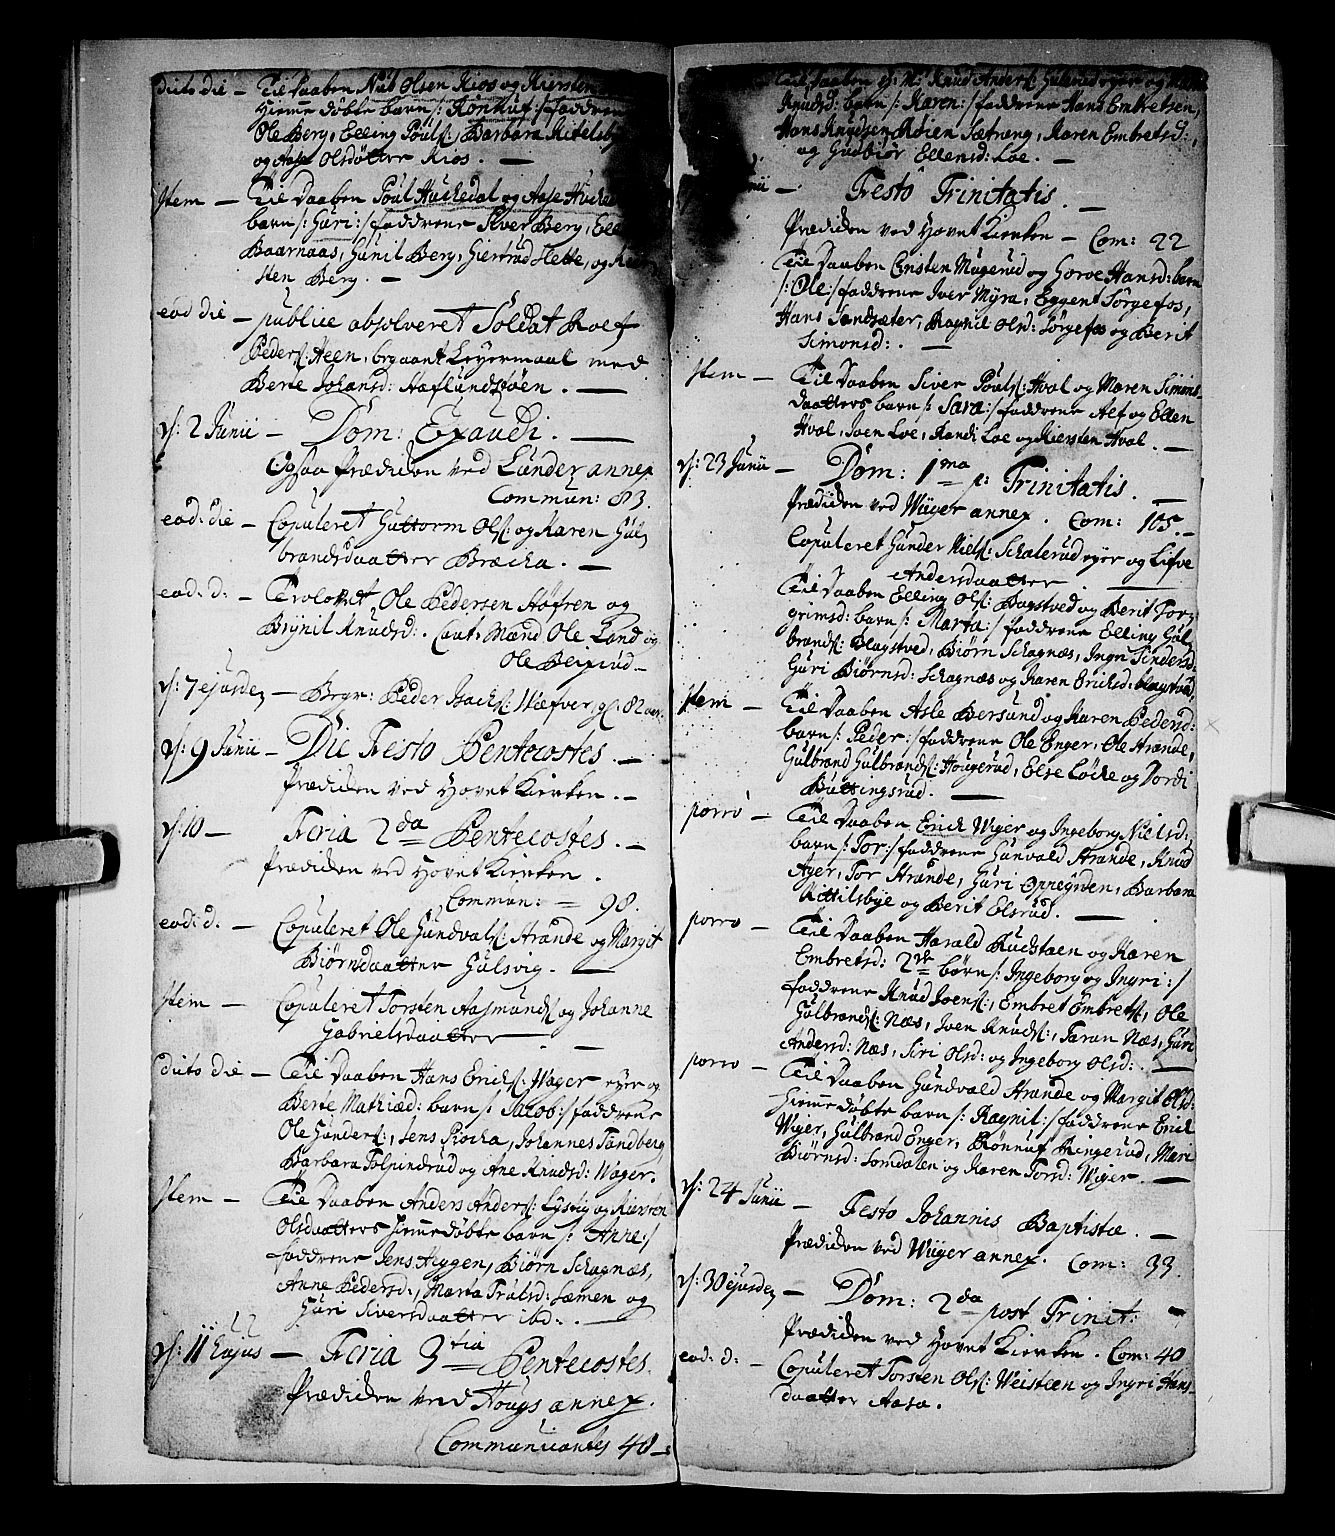 dito die — Til Daaben Nils Olsen Kios og Kiersten
hiemme døbte barn /: Rønnuf :/ faddrene
Ole Berg, Elling Pouls:, Barbara Kitelsby
og Aase Olsdotter Kios. —
Item — Til Daaben Poul Huchedal og Aase Huche
barn /: Guri :/ faddrene Siver Berg, Ell
Baarnaas, Gunil Berg, Giertrud Hette, og Kier
sten Berg. —
eod die — publice absolveret Soldat Roef
Peders: Heen, begaaet Leyermaal med
Berte Johansd: Haflundstøen. —
d: 2 Junii — Dom: Exaudi. —
Ogsaa Prædiken ved Lunder annex
Commun: 83.
eod: die — Copuleret Guttorm Ols: og Karen Gul
brandsdaatter Bræcka. —
eod: d: — Trolovet Ole Pedersen Høfren og
Brynil Knudsd: Caut: Mænd Ole Land og
Ole Beigrud —
d: 7 ejusdem — Begr: Peder Isachs: Wæfver, gl: 82 aar.
d: 9 Junii — Die Festo Pentecostes. —
Prædiken ved Hovet Kierken. —
d: 10 — Feria 2da Pentecostes. —
Prædiken ved Hovet Kierken.
Commun: — 98.
eod: d. — Copuleret Ole Gundvals: Strande og Margit
Biørnsdaatter Gulsvig. —
Item — Copuleret Torsten Aasmunds: og Johanne
Gabrielsdaatter —
dito die — Til Daaben Hans Erichs: Wager eyer og
Berte Mathiæd: barn /: Jacob :/ faddrene
Ole Gunders:, Jens Plocka, Johannes Tandberg
Barbara Tolpindrud og Ane Knudsd: Wager.
Item — Til Daaben Anders Anders: Lystig og Kiersten
Olsdaatters hiemmedøbte barn /: Anne :/
faddrene Jens Heggen, Biørn Schagnæs,
Anne Pedersd:, Marta Trulsd: Semen og
Guri Siversdaatter ibd: —
d: 11 hujus — Feria 3tia Pentecostes.
Prædiken ved Hougs annex.
Communicantes 40 —
Knudsd: barn /: Karen :/ faddrene Hans Embretsen,
Hans Knudsen Moien Sætrang, Karen Embretsd:,
og Gudbiør Ellensd: Loe. —
Junii — Festo Trinitatis. —
Prædiken ved Hovet Kierken — Com: 22
Til Daaben Cristen Mugerud og Goroe Hansd: barn
/: Ole :/ faddrene Iver Myra, Eggert Sørgefos,
Hans Sandsæter, Ragnil Olsd: Sørgefos og Berit
Simonsd: —
Item — Til Daaben Siver Pouls: Hval og Maren Simens
daatters barn /: Sara :/ faddrene Alf og Ellen
Hval, Joen Loe, Randi Loe og Kiersten Hval. —
d: 23 Junii — Dom: 1ma p: Trinitatis. —
Prædiken ved Wiiger annex. Com: 105. —
Copuleret Gunder Niels: Schalerud eyer og Lifve
Andersdaatter —
Til Daaben Elling Ols: Bagstved og Berit Torg
grimsd: barn /: Marta :/ faddrene Elling Gul
brands: Plagstved, Biørn Schagnæs, Ingri Sindersd:
Guri Biørnsd: Schagnæs og Karen Erichsd: blagstvæd,
Item — Til Daaben Asle Bersund og Karen Pedersd:
barn /: Peder :/ faddrene Ole Enger, Ole Strande,
Gulbrand Gulbrands: Hougerud, Else Løcke og Jordi
Buttingsrud. —
porro — Til Daaben Erich Wiger og Ingeborg Nielsd:
barn /: Tor :/ faddrene Gunvald Strande, Knud
Ager, Tor Strande, Guri Oppegden, Barbara
Kittilsbye og Berit Elsrud. —
porro — Til Daaben Harald Rudstaen og Karen
Embretsd: 2de børn /: Ingeborg og Ingri :/
faddrene Knud Joens:, Embret Embrets:, Ole
Gulbrands: Næs, Joen Knuds:, Taran Næs, Guri
Andersd: Næs, Siri Olsd: og Ingeborg Olsd: —
porro — Til Daaben Gundvald Strande og Margit Olsd:
hiemmedøbte barn /: Ragnil :/ faddrene Erich
Wiger, Gulbrand Enger, Rønnuf Ringerud, Mari
Biørnsd: Somdalen og Karen Torsd: Wiger. —
d: 24 Junii — Festo Johannis Baptistæ. —
Prædiken ved Wiiger annex. Com: 33.
d: 30 ejusdem — Dom: 2da post Trinit: —
Prædiken ved Hovet Kierken. Com: 40
eod: d: — Copuleret Torsten Ols: Weisteen og Ingri Hans
daatter Aasa.